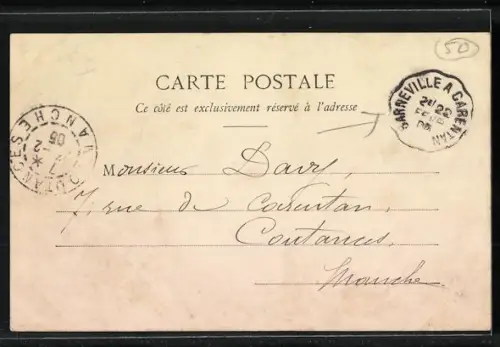 50
CARTE POSTALE
Ce côté est exclusivement réservé à l'adresse
CARTERET A CARENTAN
FEVR
COUTANCES
MANCHE
Monsieur Davy,
7, rue de Carentan,
Coutances,
Manche